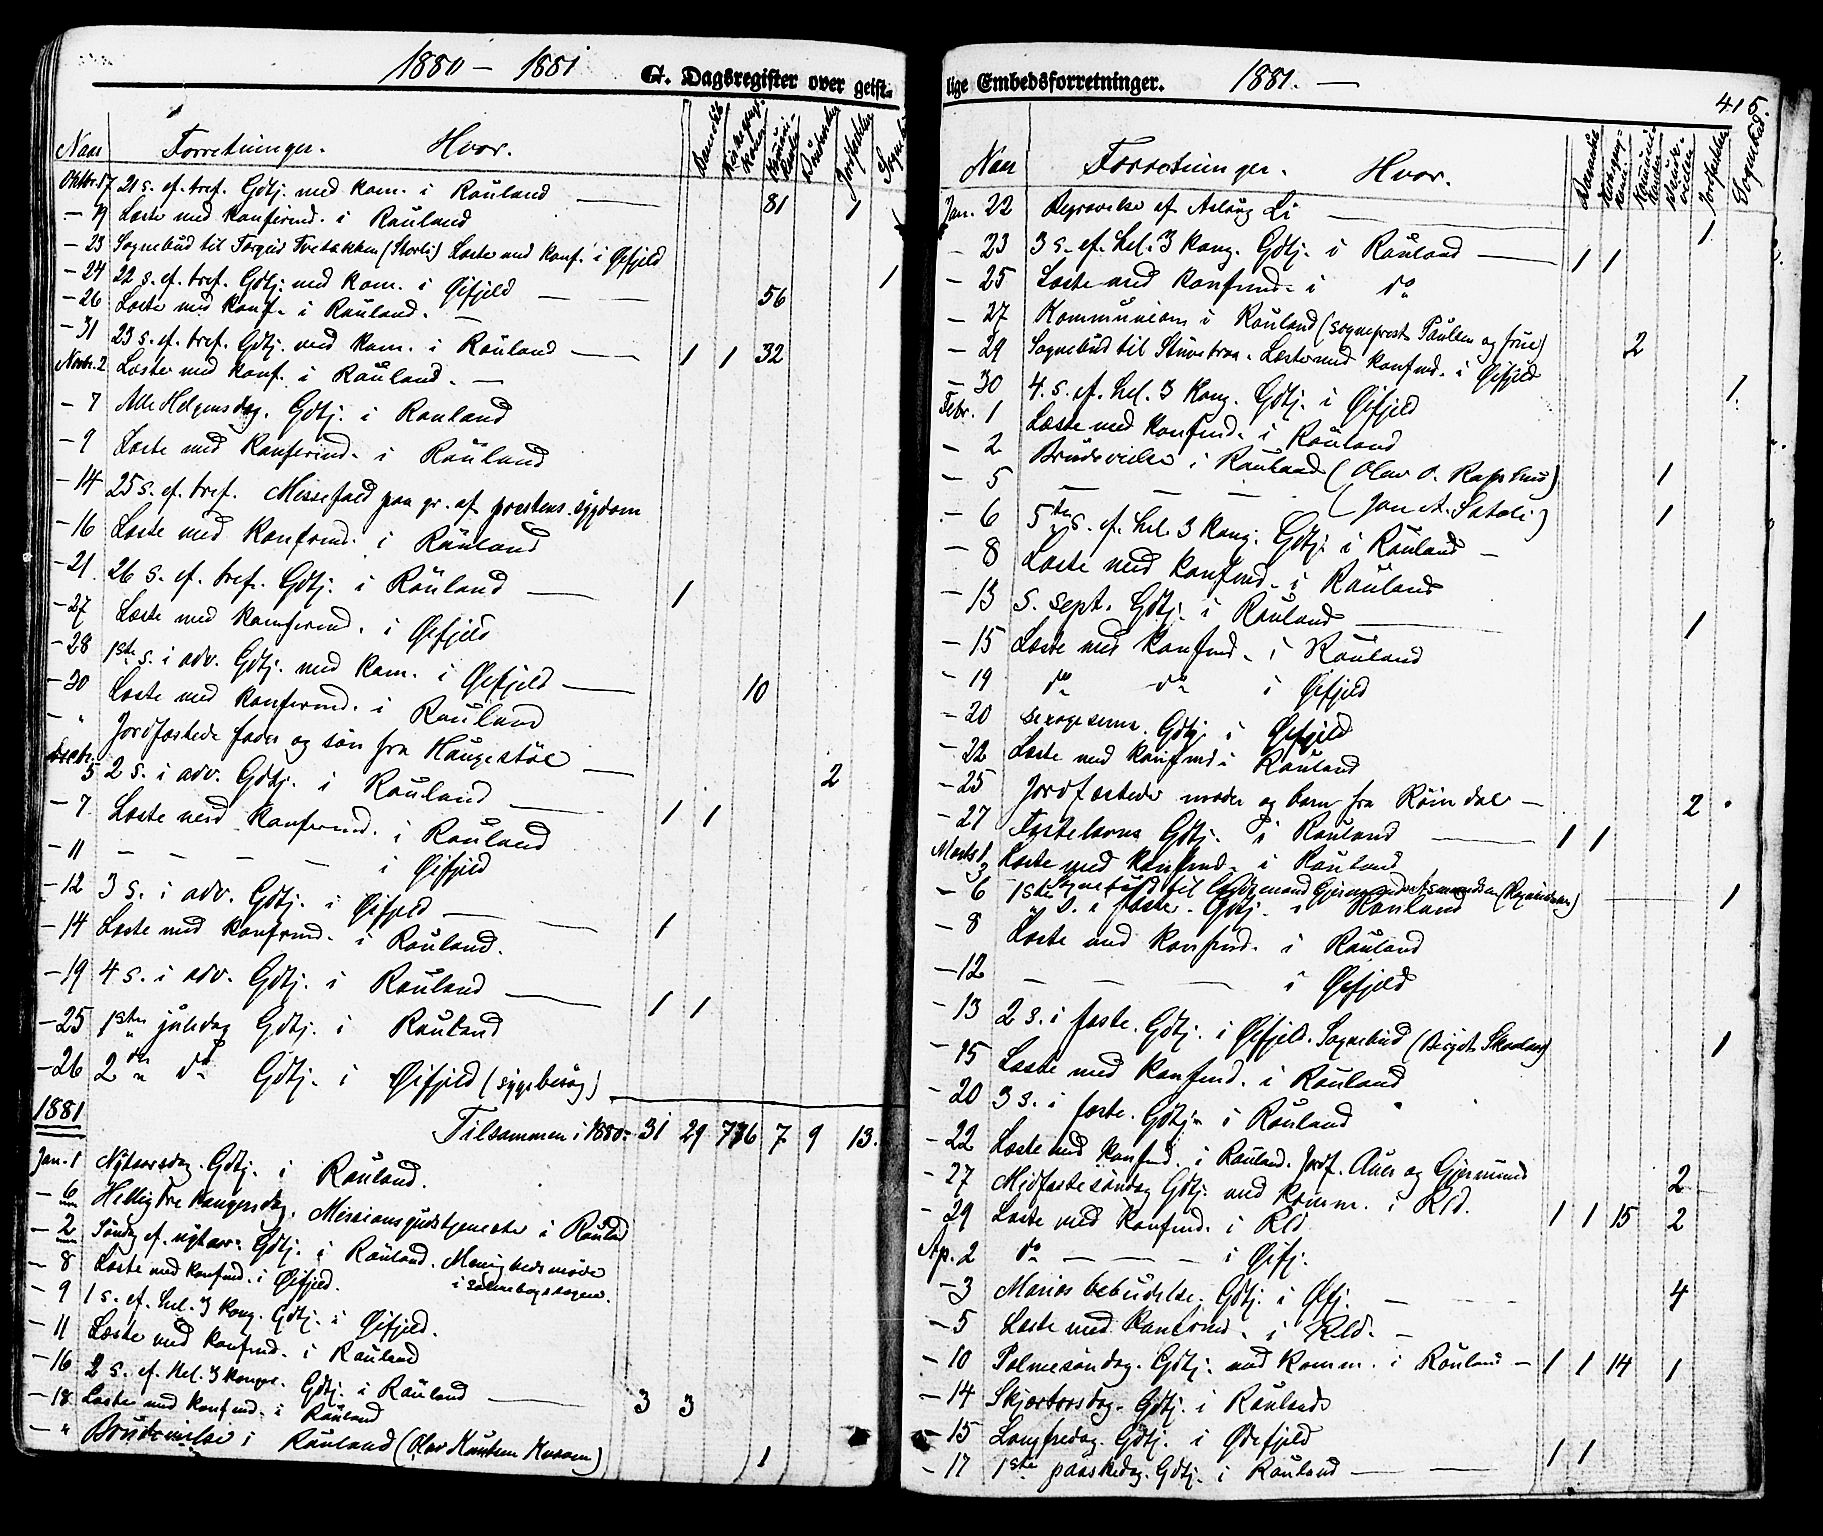 1880 – 1881
G. Dagsregister over geist-
Naar Forretninger. Hvor.
Daabsdøb Kirkegangskoner Kommunikanter Brudevielser Jordfæstelser Sognebud
Oktbr. 17 21 s. ef. tref. Gdtj. med kom. i Rauland — 81 1
– 19 Læste med konfirmd. i Rauland
– 23 Sognebud til Torgius Tvetakken (Storli) Læste med konf. i Øifjeld
– 24 22 s. ef. tref. Gdtj. med kom. i Øifjeld — — 56 1
– 26 Læste med konf. i Rauland. —
– 31 23 s. ef. tref. Gdtj. med kom. i Rauland — 1 1 32
Novbr. 2 Læste med konf. i Rauland. —
– 7 Alle Helgensdag. Gdtj. i Rauland
– 9 Læste med konfirmd. i Rauland
– 14 25 s. ef. tref. Messefald paa gr. af prestens sygdom
– 16 Læste med konfirmd. i Rauland
– 21 26 s. ef. tref. Gdtj. i Rauland — 1
– 27 Læste med konfirmd. i Øifjeld
– 28 1ste s. i adv. Gdtj. med kom. i Øifjeld — 10
– 30 Læste med konfirmd. i Rauland
– " Jordfæstede fader og søn fra Haugestøl — 2
Decbr. 5 2 s. i adv. Gdtj. i Rauland — 1 1
– 7 Læste med konfirmd. i Rauland
– 11 – – – – i Øifjeld
– 12 3 s. i adv. Gdtj. i Øifjeld — 1
– 14 Læste med konfirmd. i Rauland.
– 19 4 s. i adv. Gdtj. i Rauland — 1 1
– 25 1ste juledag Gdtj. i Rauland
– 26 2den do Gdtj. i Øifjeld (sygebesøg)
1881 Tilsammen i 1880: 31 29 776 7 9 13.
Jan. 1 Nytaarsdag. Gdtj. i Rauland.
– 6 Hellig tre kongersdag. Missionsgudstjeneste i Rauland
– 2 Søndag ef. nytaar. Gdtj. i Rauland. Menighedsmøde
i salmebogssagen.
– 8 Læste med konfmd. i Øifjeld.
– 9 1 s. ef. hel. 3 kong. Gdtj. i Øifjeld.
– 11 Læste med konfmd. i Rauland
– 16 2 s. ef. hel. 3 konger. Gdtj. i Rauland — 3 3
– 18 Læste med konfmd. i Rauland
– " Brudevielse i Rauland (Olav Knutsen) 1
lige Embedsforretninger. 1881. –
415.
Naar Forretninger. Hvor.
Daabsdøb Kirkegangskoner Kommunikanter Brudevielser Jordfæstelser Sognebud
Jan. 22 Begravelse af Aslaug Li — 1
– 23 3 s. ef. hel. 3 kong. Gdtj. i Rauland — 1 1
– 25 Læste med konfmd. i do
– 27 Kommunion i Rauland (sogneprest Paulsen og frue) 2
– 29 Sognebud til. Læste med konfmd. i Øifjeld 1
– 30 4. s. ef. hel. 3 kong. Gdtj. i Øifjeld
Febr. 1 Læste med konfmd. i Rauland
– 2 Brudevielse i Rauland (Olav O. Rapshus) 1
– 5 – – – (Jon A. Satali) 1
– 6 5te s. ef. hel. 3 kong. Gdtj. i Rauland –
– 8 Læste med konfmd. i Rauland
– 13 s. sept. Gdtj. i Rauland — 1
– 15 Læste med konfmd. i Rauland
– 19 do do i Øifjeld
– 20 sexagesima. Gdtj. i Øifjeld
– 22 Læste med konfmd. i Rauland
– 25 Jordfæstede moder og barn fra Røindal – 2
– 27 Fastelavns Gdtj. i Rauland — 1 1
Marts 1 Læste med konfmd. i Rauland
3 Sognebud til Gjermund — 1
– 6 1ste s. i faste. Gdtj. i Rauland
– 8 Læste med konfmd. i Rauland
– 12 – – – i Øifjeld
– 13 2 s. i faste. Gdtj. i Øifjeld. Sognebud (Birgit) 1
– 15 Læste med konfmd. i Rauland
– 20 3 s. i faste. Gdtj. i Rauland
– 22 Læste med konfmd. i Rauland. Jordf. Anne og Gjermund 2
– 27 Midfastesøndag Gdtj. med komm. i Rld. 1 1 15 2
– 29 Læste med konfmd. i Rld
Ap. 2 do – – – i Øifj.
– 3 Marias bebudelse. Gdtj. i Øfj. – 4
– 5 Læste med konfirmd. i Rld. –
– 10 Palmesøndag. Gdtj. med komm. i Rauland – 1 1 14 1
– 14 Skjærtorsdag. Gdtj. i Rauland
– 15 Langfredag. Gdtj. i Øifjeld
– 17 1ste paaskedag. Gdtj. i Rauland — 1 1